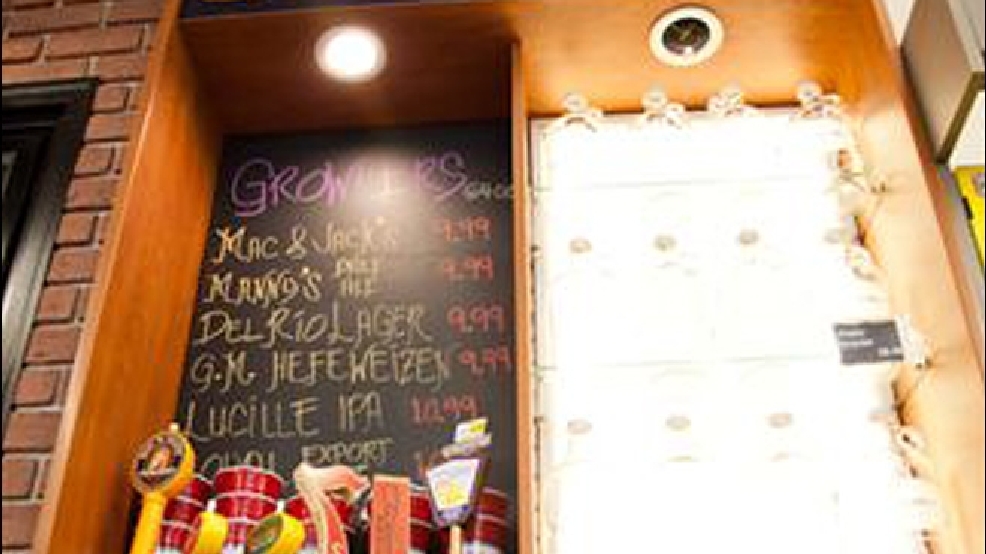 GROWLERS 64oz
MAC & JACK'S 9.99
MANNY'S PALE ALE 9.99
DEL RIO LAGER 9.99
G.M. HEFEWEIZEN 9.99
LUCILLE IPA 10.99
EXPORT